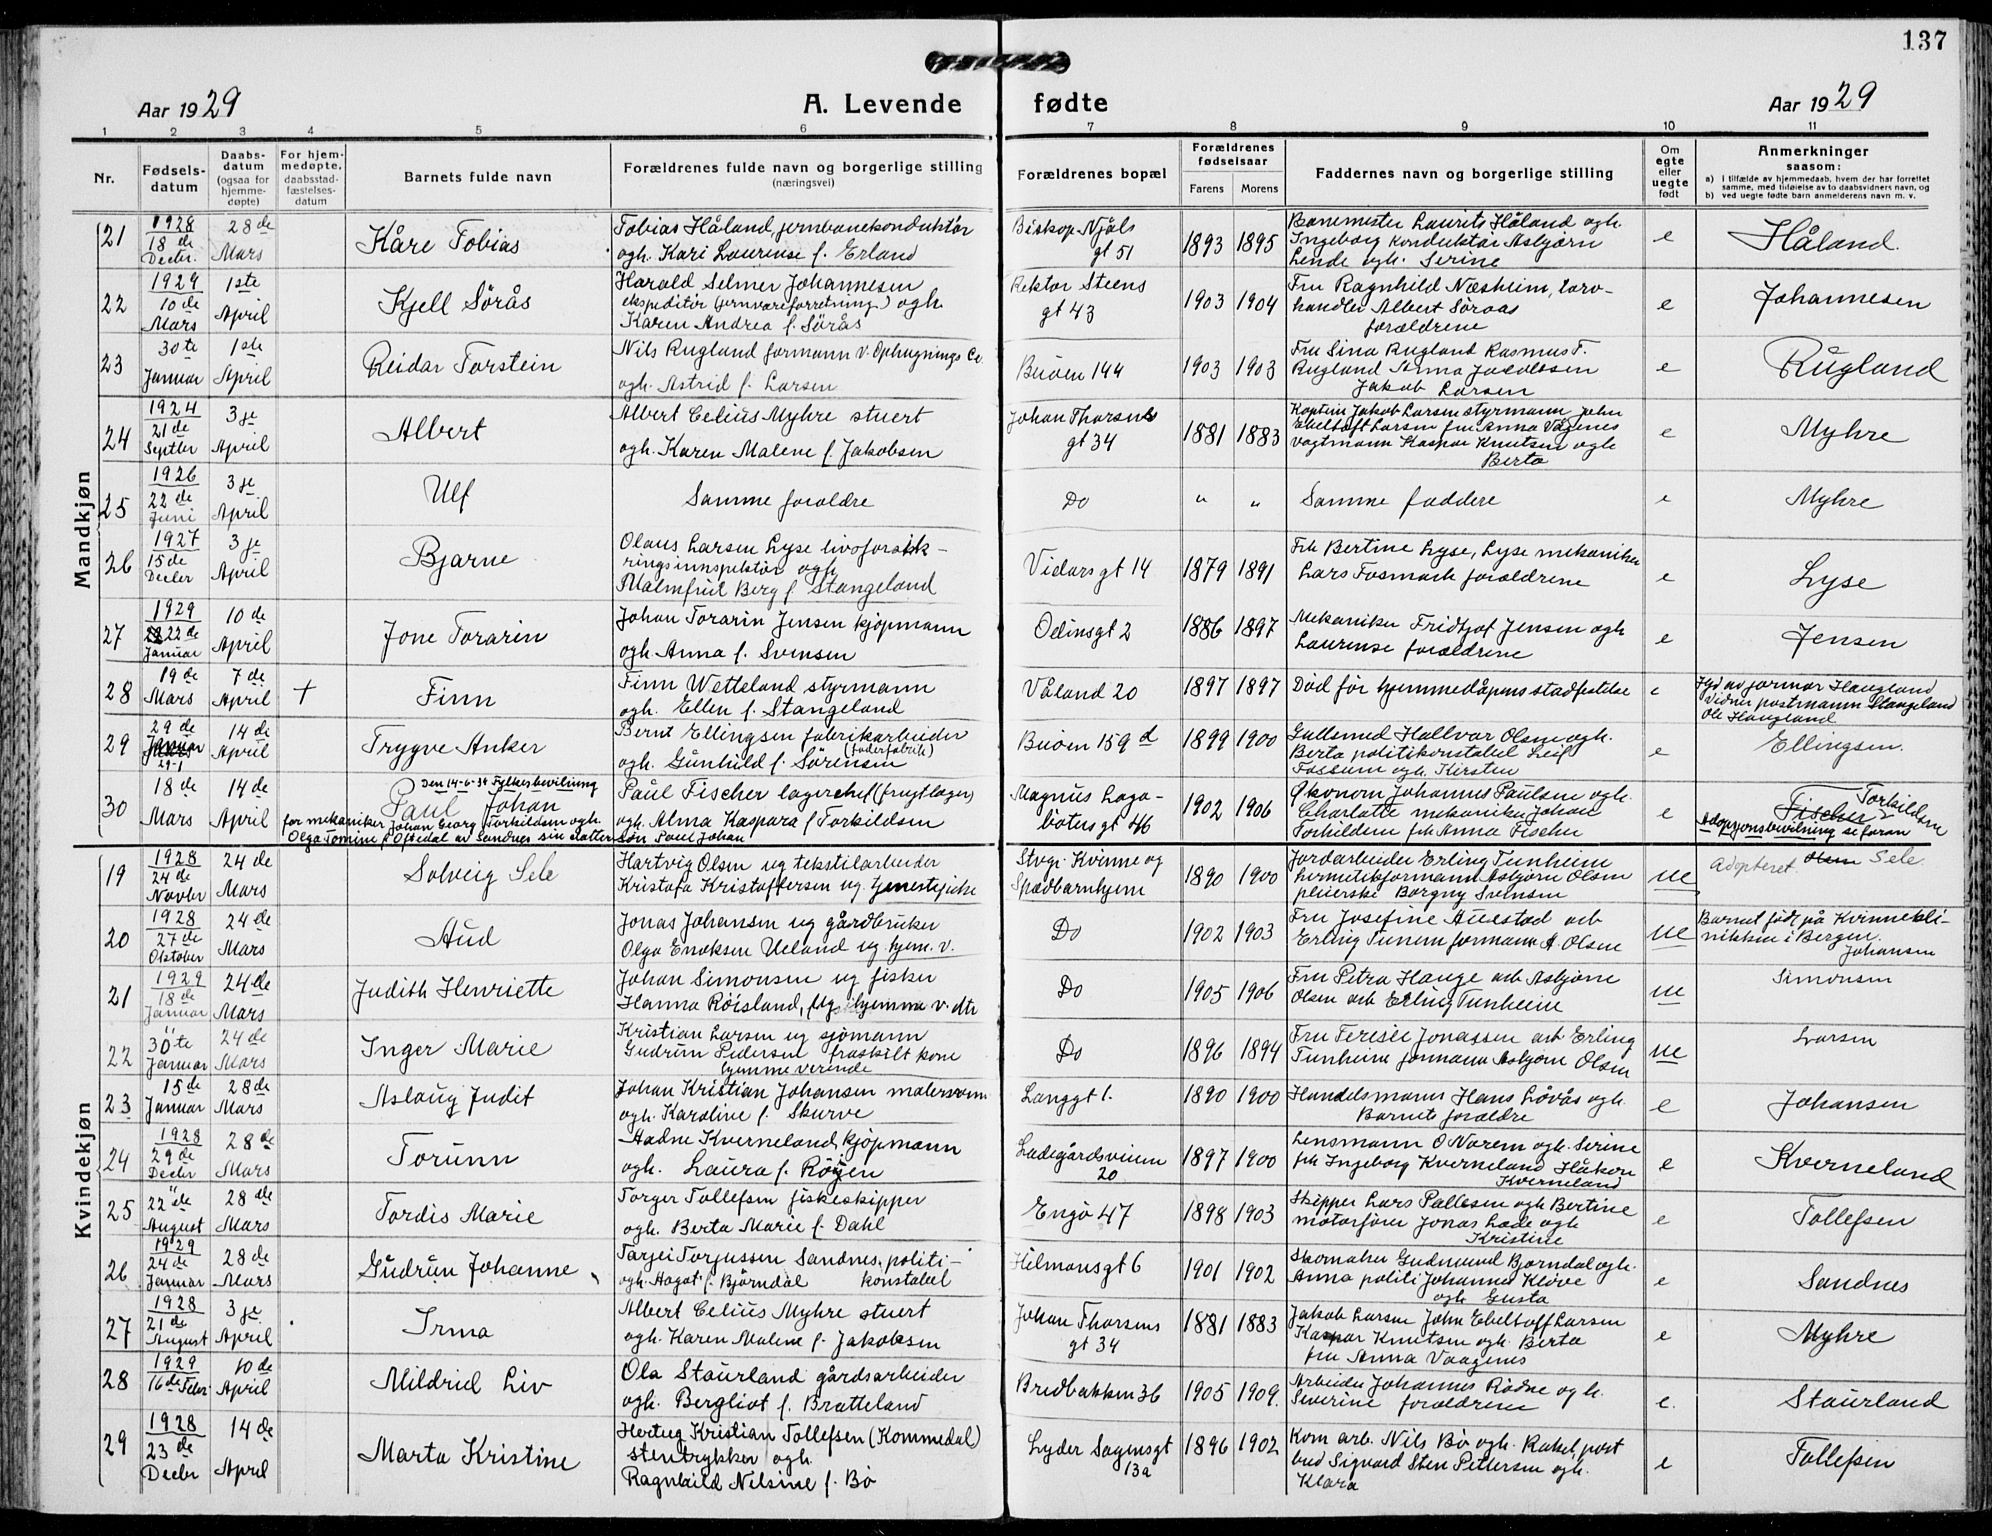 137
Aar 1929 A. Levende fødte Aar 1929
1 2 3 4 5 6 7 8 9 10 11
Nr.
Fødsels-
datum
Daabs-
datum
(ogsaa for
hjemme-
døpte)
For hjem-
medøpte,
daabsstad-
fæstelses-
datum
Barnets fulde navn
Forældrenes fulde navn og borgerlige stilling
(næringsvei)
Forældrenes bopæl
Forældrenes
fødselsaar
Farens Morens
Faddernes navn og borgerlige stilling
Om
egte
eller
uegte
født
Anmerkninger
saasom:
a) I tilfælde av hjemmedaab, hvem der har forrettet
samme, med tilføielse av to daabsvidners navn, og
b) ved uegte fødte barn anmelderens navn m. v.
Mandkjøn
21
1928
18de
Decbr.
28de
Mars
Kåre Tobias
Tobias Håland, jernbanekonduktør
ogh. Kari Laurense f. Erland
Biskop Njåls
gt 51
1893 1895
Banemester Laurits Håland ogh.
Ingeborg konduktør Asbjørn
Lende ogh. Serine
e
Håland.
22
1929
10de
Mars
1ste
April
Kjell Sörås
Harald Selmer Johannesen
ekspeditör (jernvareforretning) ogh
Karen Andrea f. Sörås
Rektor Steens
gt 43
1903 1904
Fru Ragnhild Næsheim, torv-
handler Albert Söraas
forældrene
e
Johannesen
23
30te
Januar
1ste
April
Reidar Torstein
Nils Rugland formann v. Ophugnings Co.
ogh. Astrid f. Larsen
Buöen 144
1903 1903
Fru Sina Rugland Rasmus T.
Rugland Anna Jacobsen
Jakob Larsen
e
Rugland
24
1924
21de
Septbr
3je
April
Albert
Albert Celius Myhre stuert
ogh. Karen Malene f. Jakobsen
Johan Thorsens
gt 34
1881 1883
Kaptein Jakob Larsen styrmann John
Ebeltoft Larsen fru Anna Vågenes
vagtmann Kaspar Knutsen ogh
Berta
e
Myhre
25
1926
22de
Juni
3je
April
Ulf
Samme foræl­dre
Do
" "
Samme faddere
e
Myhre
26
1927
15de
Decbr
3je
April
Bjarne
Olaus Larsen Lyse livsforsik-
ringsinnspektör ogh
Malmfrid Berg f. Stangeland
Vidarsgt 14
1879 1891
Frk Bertine Lyse, Lyse mekaniker
Lars Fosmark forældrene
e
Lyse
27
1929
22de
Januar
10de
April
Jone Torarin
Johan Torarin Jensen kjöpmann
ogh. Anna f. Svensen
Odinsgt 2
1886 1897
Mekaniker Fridtjof Jensen ogh
Laurense forældrene
e
Jensen
28
19de
Mars
7de
April
+
Finn
Finn Wetteland styrmann
ogh. Ellen f. Stangeland
Våland 20
1897 1897
Död för hjemmedåpens stadfestelse
e
Jfd av jormor Haugland
Vidner postmann Stangeland
Ole Haugland
29
29de
Januar
29-1
14de
April
Trygve Anker
Bernt Ellingsen fabrikarbeider
(foderfabrik)
ogh. Gunhild f. Sörensen
Buöen 159d
1899 1900
Gullsmed Hallvar Olsen ogh.
Berta politikonstabel Leif
Fossum ogh. Kirsten
e
Ellingsen.
30
18de
Mars
14de
April
Den 14-6-34 Fylkesbevilning
Paul Johan
for mekaniker Johan Georg Torkildsen ogh.
Olga Tomine f. Ofstedal av Sandnes sin datter-
sön Paul Johan
Paul Fischer lagerchef (frugtlager)
ogh. Alma Kaspara f Torkildsen
Magnus Laga-
bötersgt 46
1902 1906
Økonom Johannes Paulsen ogh.
Charlotte mekaniker Johan
Torkildsen frk Anna Fischer
e
Fischer Torkildsen
Adopsjonsbevilning se foran
Kvindekjøn
19
1928
24de
Novbr
24de
Mars
Solveig Sele
Hartvig Olsen ug tekstilarbeider
Kristofa Kristoffersen ug. tjenestepike
Stvgr. Kvinne og
Spædbarnhjem
1890 1900
Jordarbeider Erling Tunheim
hermetikformann Asbjörn Olsen
pleierske Borgny Svensen
ue
Adopteret Olsen Sele.
20
1928
27de
Oktober
24de
Mars
Aud
Jonas Johansen ug gårdbruker
Olga Enoksen Ueland ug hjem. v.
Do
1902 1903
Fru Josefine Auestad arb
Erling Tunem formann A. Olsen
ue
Barnet födt på Kvinnekli-
nikken i Bergen.
Johansen
21
1929
18de
Januar
24de
Mars
Judith Henriette
Johan Simonsen ug fisker
Hanna Röisland, ug hjemme v. dtr
Do
1905 1906
Fru Petra Hauge arb Asbjörn
Olsen arb Erling Tunheim
ue
Simonsen
22
"
30te
Januar
24de
Mars
Inger Marie
Kristian Larsen ug sjömann
Gudrun Pedersen fraskilt kone
hjemmeverende
Do
1896 1894
Fru Teresie Jonassen arb Erling
Tunheim formann Asbjörn Olsen
ue
Larsen
23
15de
Januar
28de
Mars
Aslaug Judit
Johan Kristian Johansen malersvenn
ogh. Karoline f. Skurve
Langgt 1.
1890 1900
Handelsmann Hans Lövås ogh.
Barnets forældre
e
Johansen
24
1928
29de
Decbr
28de
Mars
Torunn
Hadne Kverneland, kjöpmann
ogh. Laura f. Röyen
Ladegårdsveien
20
1897 1900
Lensmann O Norem ogh. Serine
frk Ingeborg Kverneland Håkon
Kverneland
e
Kverneland
25
"
22de
August
28de
Mars
Tordis Marie
Torger Tollefsen fiskeskipper
ogh. Berta Marie f. Dahl
Engö 47
1898 1903
Skipper Lars Pallesen ogh Bertine
motorförer Jonas Lade ogh
Kristine
e
Tollefsen
26
1929
24de
Januar
28de
Mars
Gudrun Johanne
Tarjei Torjussen Sandnes, politi-
ogh. Hagat f. Björndal konstabel
Hetmansgt 6
1901 1902
Skomaker Gudmund Bjorndal ogh.
Anna politi Johannes Klöve
ogh Gusta
e
Sandnes
27
1928
21de
August
3je
April
Irma
Albert Celius Myhre stuert
ogh. Karen Malene f. Jakobsen
Johan Thorsens
gt 34
1881 1883
Jakob Larsen John Ebeltoff Larsen
Kaspar Knutsen ogh Berta
fru Anna Vaagenes
e
Myhre
28
1929
16de Febr
10de
April
Mildrid Liv
Ola Staurland gårdsarbeider
ogh. Bergliot f. Bratteland
Bredbakken 36
1905 1909.
Arbeider Johannes Rödne ogh.
Severine forældrene
e.
Staurland
29
1928
23de
Decbr
14de
April
Marta Kristine
Hertug Kristian Tollefsen (Kommedal)
stentrykker ogh.
Ragnhild Nilsine f. Bö
Lyder Sagensgt
13a
1896 1902
Kom arb. Nils Bö ogh. Rakel, post
bud Sigvard Sten Pettersen ogh.
Klara
e
Tollefsen